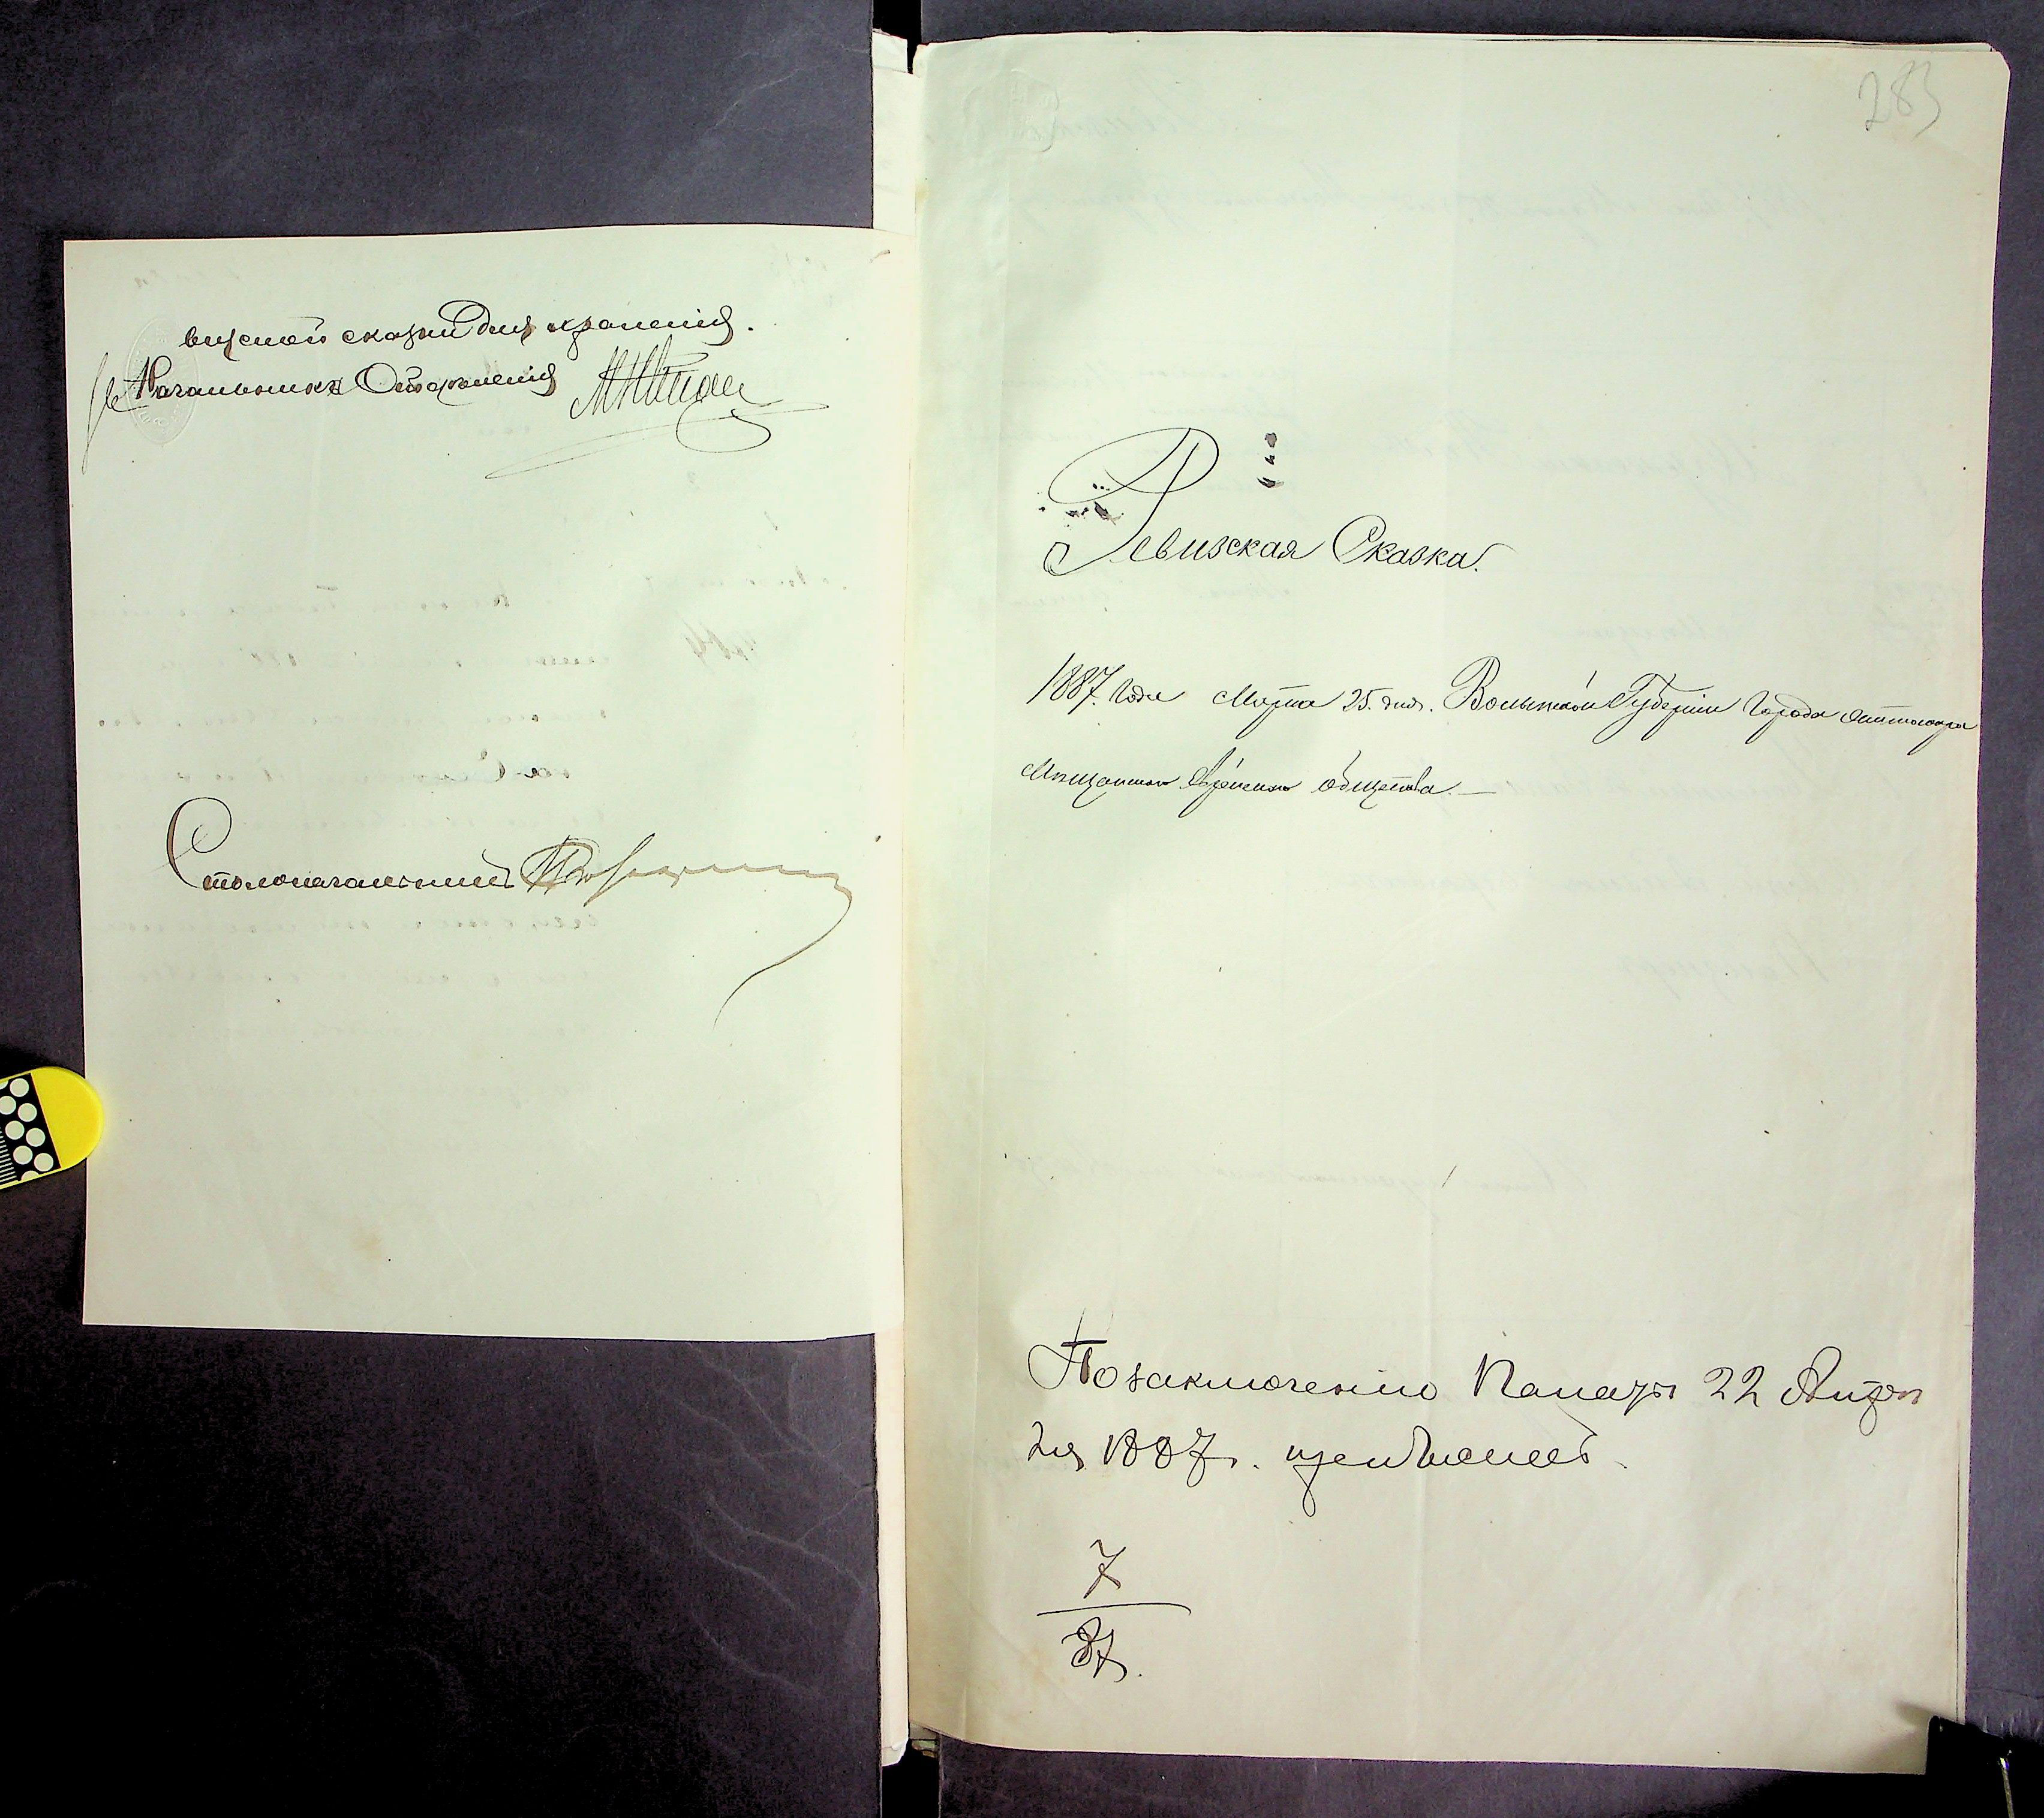 визской сказки для храненія.
Начальникъ Отдѣленія
Столоначальникъ
283
Ревизская Сказка.
1887. Года Марта 25. дня. Волынской Губерніи Города Житомира
Мѣщанскаго Еврейскаго общества.—
По заключенію Палаты 22 Апрѣ
ля 1887 г.
7
87.